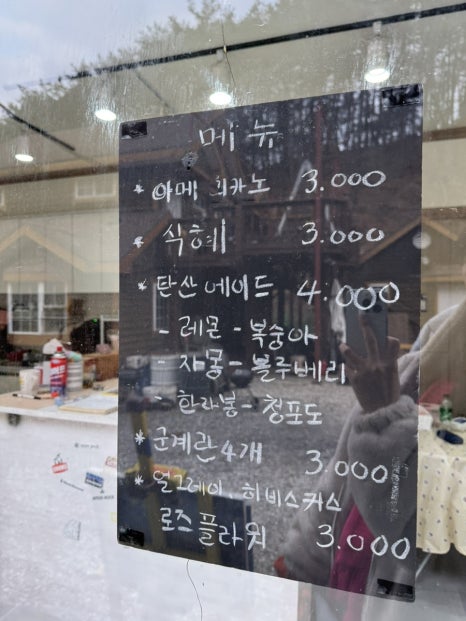 메뉴
* 아메리카노 3.000
* 식혜 3.000
* 탄산에이드 4.000
- 레몬 - 복숭아
- 자몽 - 블루베리
- 한라봉 - 청포도
* 군계란4개 3.000
* 얼그레이. 히비스커스
로즈플라워 3.000